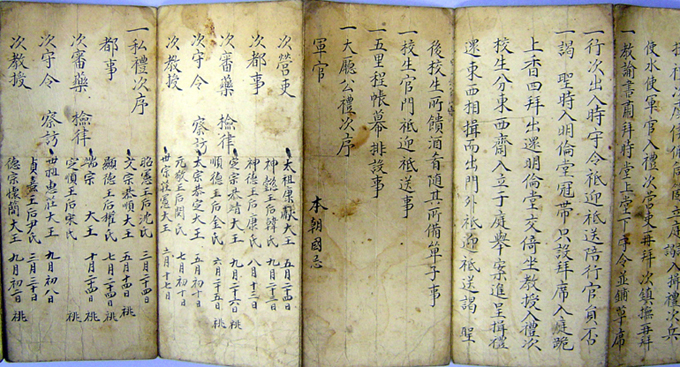 使水使軍官入禮次營吏再拜次鎮撫再拜
一教諭書肅拜時堂上堂下守令並鋪單席
一行次出入時守令祗迎祗送陪行官員否
一謁 聖時入明倫堂冠帶只設拜席入庭跪
上香四拜出還明倫堂交倚坐教授入禮次
校生分東西齋入立于庭擧案進呈揖禮
還東西相揖而出門外祗迎祗送謁 聖
後校生所饋酒肴隨其所備單子事
一校生官門祗迎祗送事
一五里程帳幕排設事
一大廳公禮次序
軍官 本朝國忌
次營吏 太祖康獻大王 五月二十四日
次都事 神懿王后韓氏 九月二十三日
神德王后康氏 八月十三日
次審藥 檢律 定宗恭靖大王 九月二十六日 祧
順德王后金氏 六月二十五日 祧
次守令 察訪 太宗恭定大王 五月初十日
元敬王后閔氏 七月初十日
次教授 世宗莊憲大王 二月十七日
一私禮次序 昭憲王后沈氏 三月二十四日
都事 文宗恭順大王 五月十四日 祧
顯德王后權氏 七月二十四日 祧
次審藥 檢律 端宗 大王 十月二十四日 祧
定順王后宋氏 祧
次守令 察訪 世祖惠莊大王 九月初八日
貞熹王后尹氏 三月三十日
次教授 德宗懷簡大王 九月初二日 祧